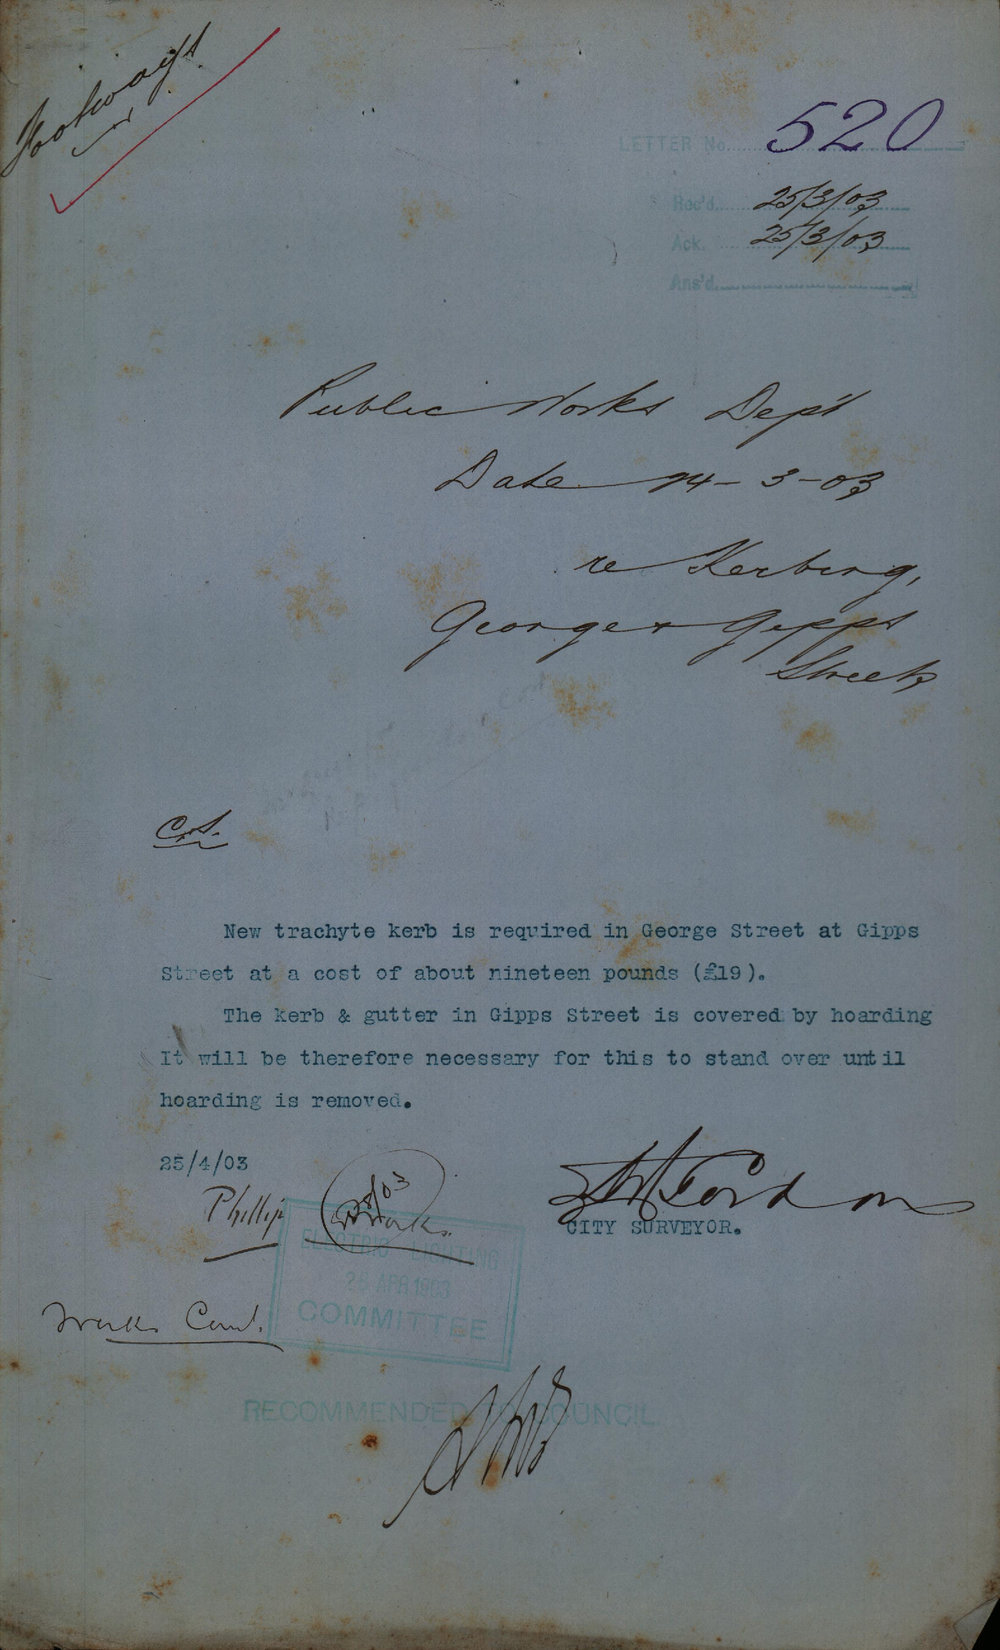 Footways
LETTER No. 520
Rec'd. 25/3/03
Ack. 25/3/03
Ans'd.
Public Works Dep't
Date 24-3-03
re Kerbing,
George & Gipps
Streets
C.S.
New trachyte kerb is required in George Street at Gipps
Street at a cost of about nineteen pounds (£19).
The kerb & gutter in Gipps Street is covered by hoarding
It will be therefore necessary for this to stand over until
hoarding is removed.
25/4/03
Phillip
Works
CITY SURVEYOR.
ELECTRIC LIGHTING
APR 1903
COMMITTEE
Works Com.
RECOMMENDED TO COUNCIL